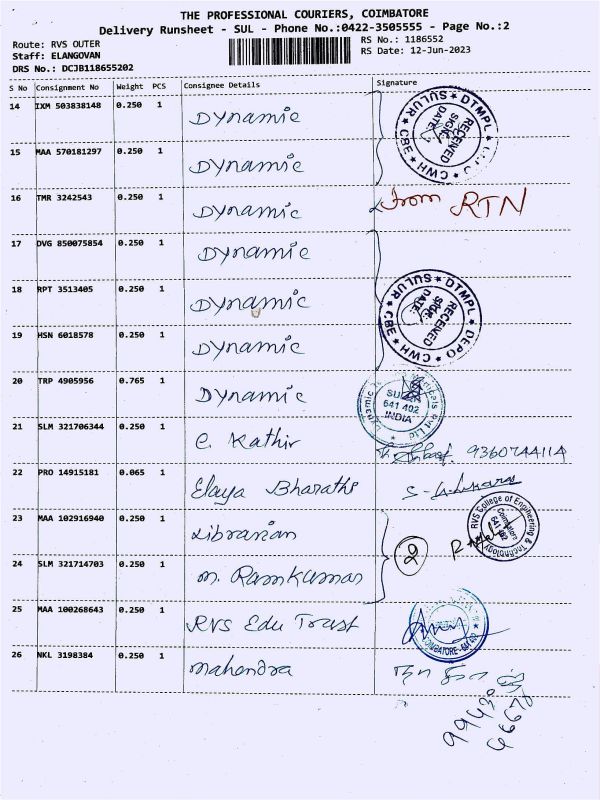 THE PROFESSIONAL COURIERS, COIMBATORE
Delivery Runsheet - SUL - Phone No.:0422-3505555 - Page No.:2
Route: RVS OUTER
RS No.: 1186552
Staff: ELANGOVAN
RS Date: 12-Jun-2023
DRS No.: DCJB118655202
S No Consignment No Weight PCS Consignee Details Signature
14 IXM 503838148 0.250 1 Dynamic
SULUR ★ DTMPL ★ CWH ★ CBE ★
RECEIVED
SIGN:
DATE:
15 MAA 570181297 0.250 1 Dynamic
16 TMR 3242543 0.250 1 Dynamic from RTN
17 DVG 850075854 0.250 1 Dynamic
18 RPT 3513405 0.250 1 Dynamic
SULUR ★ DTMPL ★ DEPO ★ CWH ★ CBE ★
RECEIVED
SIGN:
DATE:
19 HSN 6018578 0.250 1 Dynamic
20 TRP 4905956 0.765 1 Dynamic
641 402
INDIA
21 SLM 321706344 0.250 1 C. Kathir 9360744114
22 PRO 14915181 0.065 1 Elaya Bharathi
RVS College of Engineering & Technology
Coimbatore
641 402
23 MAA 102916940 0.250 1 Librarian
2
24 SLM 321714703 0.250 1 M. Ramkumar
25 MAA 100268643 0.250 1 RVS Edu Trust
COIMBATORE
26 NKL 3198384 0.250 1 Mahendra